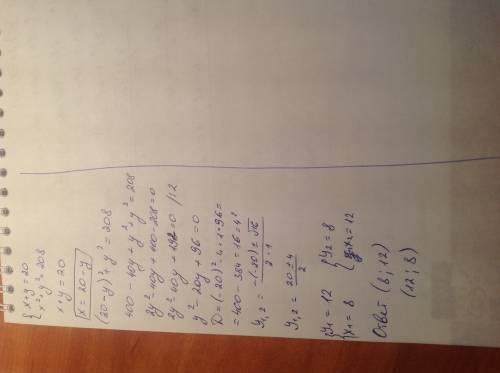 { x+y=20
x²+y²=208
x+y=20
x=20-y
(20-y)²+y²=208
400-40y+y²+y²=208
2y²-40y+400-208=0
2y²-40y+192=0 /:2
y²-20y+96=0
D=(-20)²-4·1·96=
=400-384=16=4²
y₁,₂ = -(-20)±√16 / 2·1
y₁,₂ = 20±4 / 2
{ y₁=12 { y₂=8
x₁=8 x₂=12
Ответ (8;12)
(12;8)